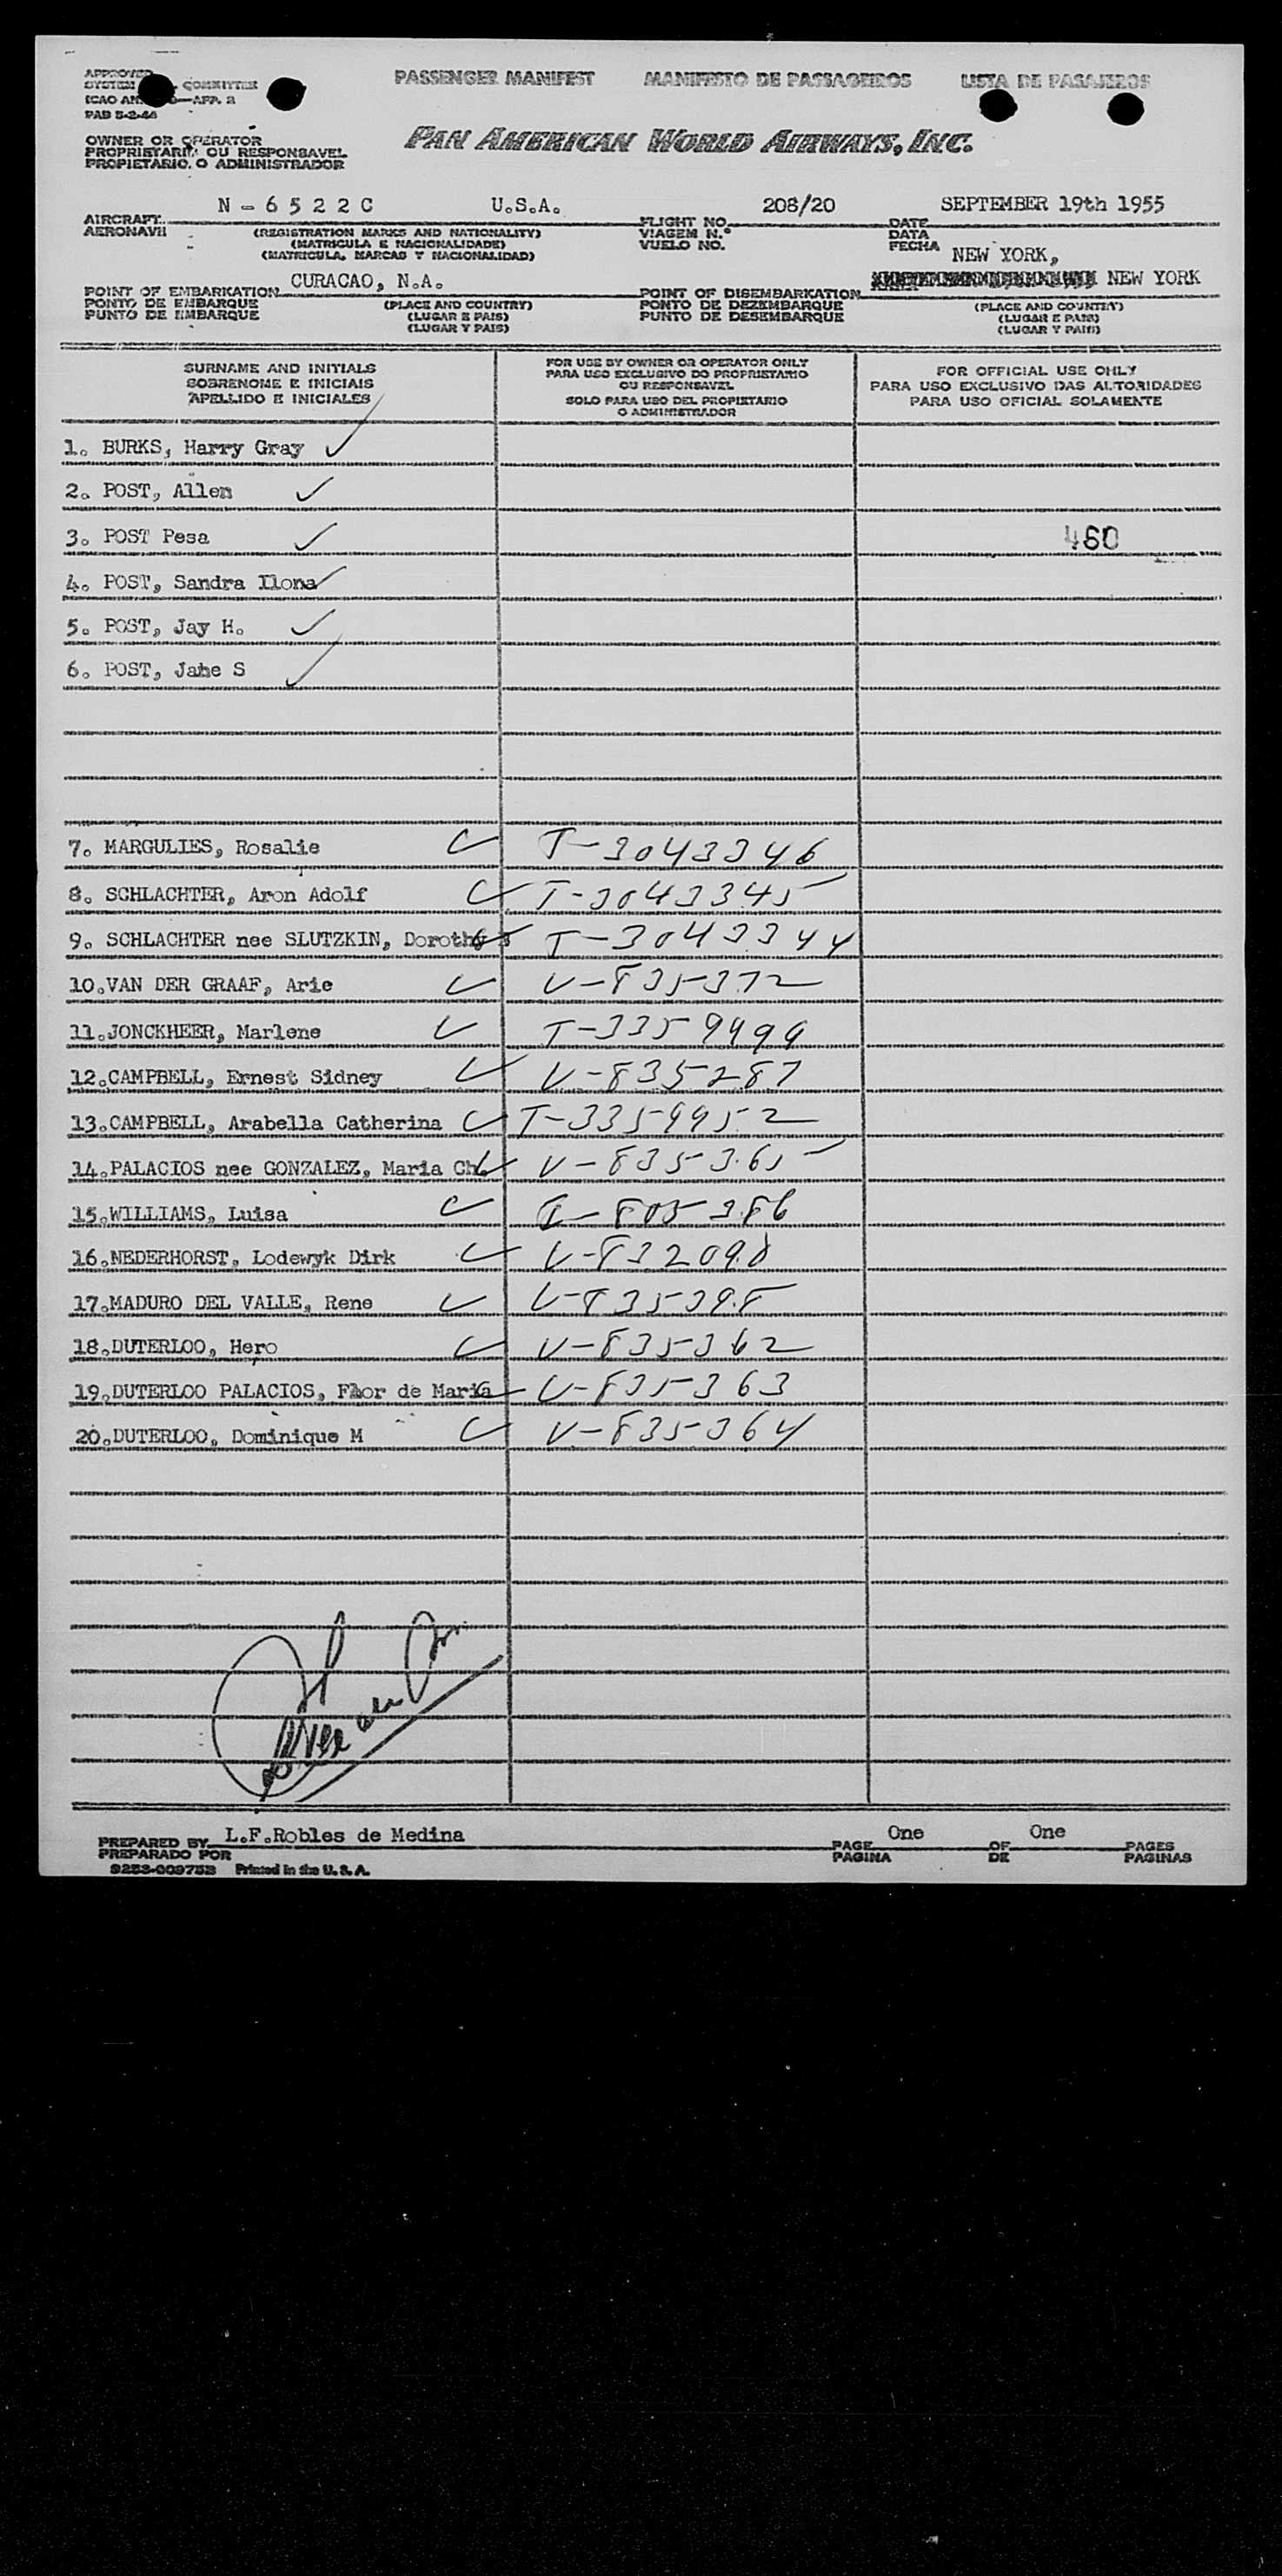 PASSENGER MANIFEST MANIFESTO DE PASSAGEIROS LISTA DE PASAJEROS
APPROVED
SYSTEM COMMITTEE
ICAO AN —APP. 2
PAB 5-2-46
OWNER OR OPERATOR
PROPRIETARIO OU RESPONSAVEL
PROPIETARIO O ADMINISTRADOR
PAN AMERICAN WORLD AIRWAYS, INC.
N - 6 5 2 2 C U.S.A. 208/20 SEPTEMBER 19th 1955
AIRCRAFT FLIGHT NO. DATE
AERONAVE (REGISTRATION MARKS AND NATIONALITY) VIAGEM N.° DATA
(MATRICULA E NACIONALIDADE) VUELO NO. FECHA
(MATRICULA, MARCAS Y NACIONALIDAD) NEW YORK,
CURACAO, N.A. NEW YORK
POINT OF EMBARKATION POINT OF DISEMBARKATION
PONTO DE EMBARQUE (PLACE AND COUNTRY) PONTO DE DEZEMBARQUE (PLACE AND COUNTRY)
PUNTO DE EMBARQUE (LUGAR E PAIS) PUNTO DE DESEMBARQUE (LUGAR E PAIS)
(LUGAR Y PAIS) (LUGAR Y PAIS)
SURNAME AND INITIALS
SOBRENOME E INICIAIS
APELLIDO E INICIALES
FOR USE BY OWNER OR OPERATOR ONLY
PARA USO EXCLUSIVO DO PROPRIETARIO
OU RESPONSAVEL
SOLO PARA USO DEL PROPIETARIO
O ADMINISTRADOR
FOR OFFICIAL USE ONLY
PARA USO EXCLUSIVO DAS AUTORIDADES
PARA USO OFICIAL SOLAMENTE
1. BURKS, Harry Gray
2. POST, Allen
3. POST Pesa 460
4. POST, Sandra Ilona
5. POST, Jay H.
6. POST, Jane S
7. MARGULIES, Rosalie T-3043346
8. SCHLACHTER, Aron Adolf T-3043345
9. SCHLACHTER nee SLUTZKIN, Dorothy T-3043344
10.VAN DER GRAAF, Arie V-835372
11.JONCKHEER, Marlene T-3359499
12.CAMPBELL, Ernest Sidney V-835287
13.CAMPBELL, Arabella Catherina T-3359952
14.PALACIOS nee GONZALEZ, Maria Ch. V-835365
15.WILLIAMS, Luisa
16.NEDERHORST, Lodewyk Dirk V-832098
17.MADURO DEL VALLE, Rene V-835398
18.DUTERLOO, Hero V-835362
19.DUTERLOO PALACIOS, Flor de Maria V-835363
20.DUTERLOO, Dominique M V-835364
L.F.Robles de Medina One One
PREPARED BY PAGE OF PAGES
PREPARADO POR PAGINA DE PAGINAS
9253-009752 Printed in the U.S.A.